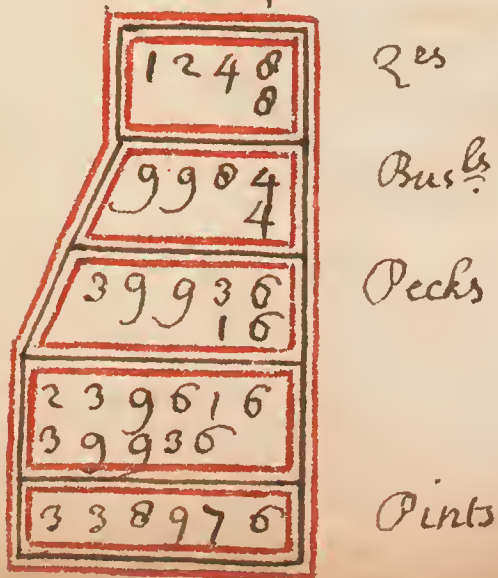 1248 Qrs
8
9984 Busls
4
39936 Pecks
16
239616
39936
338976 Pints